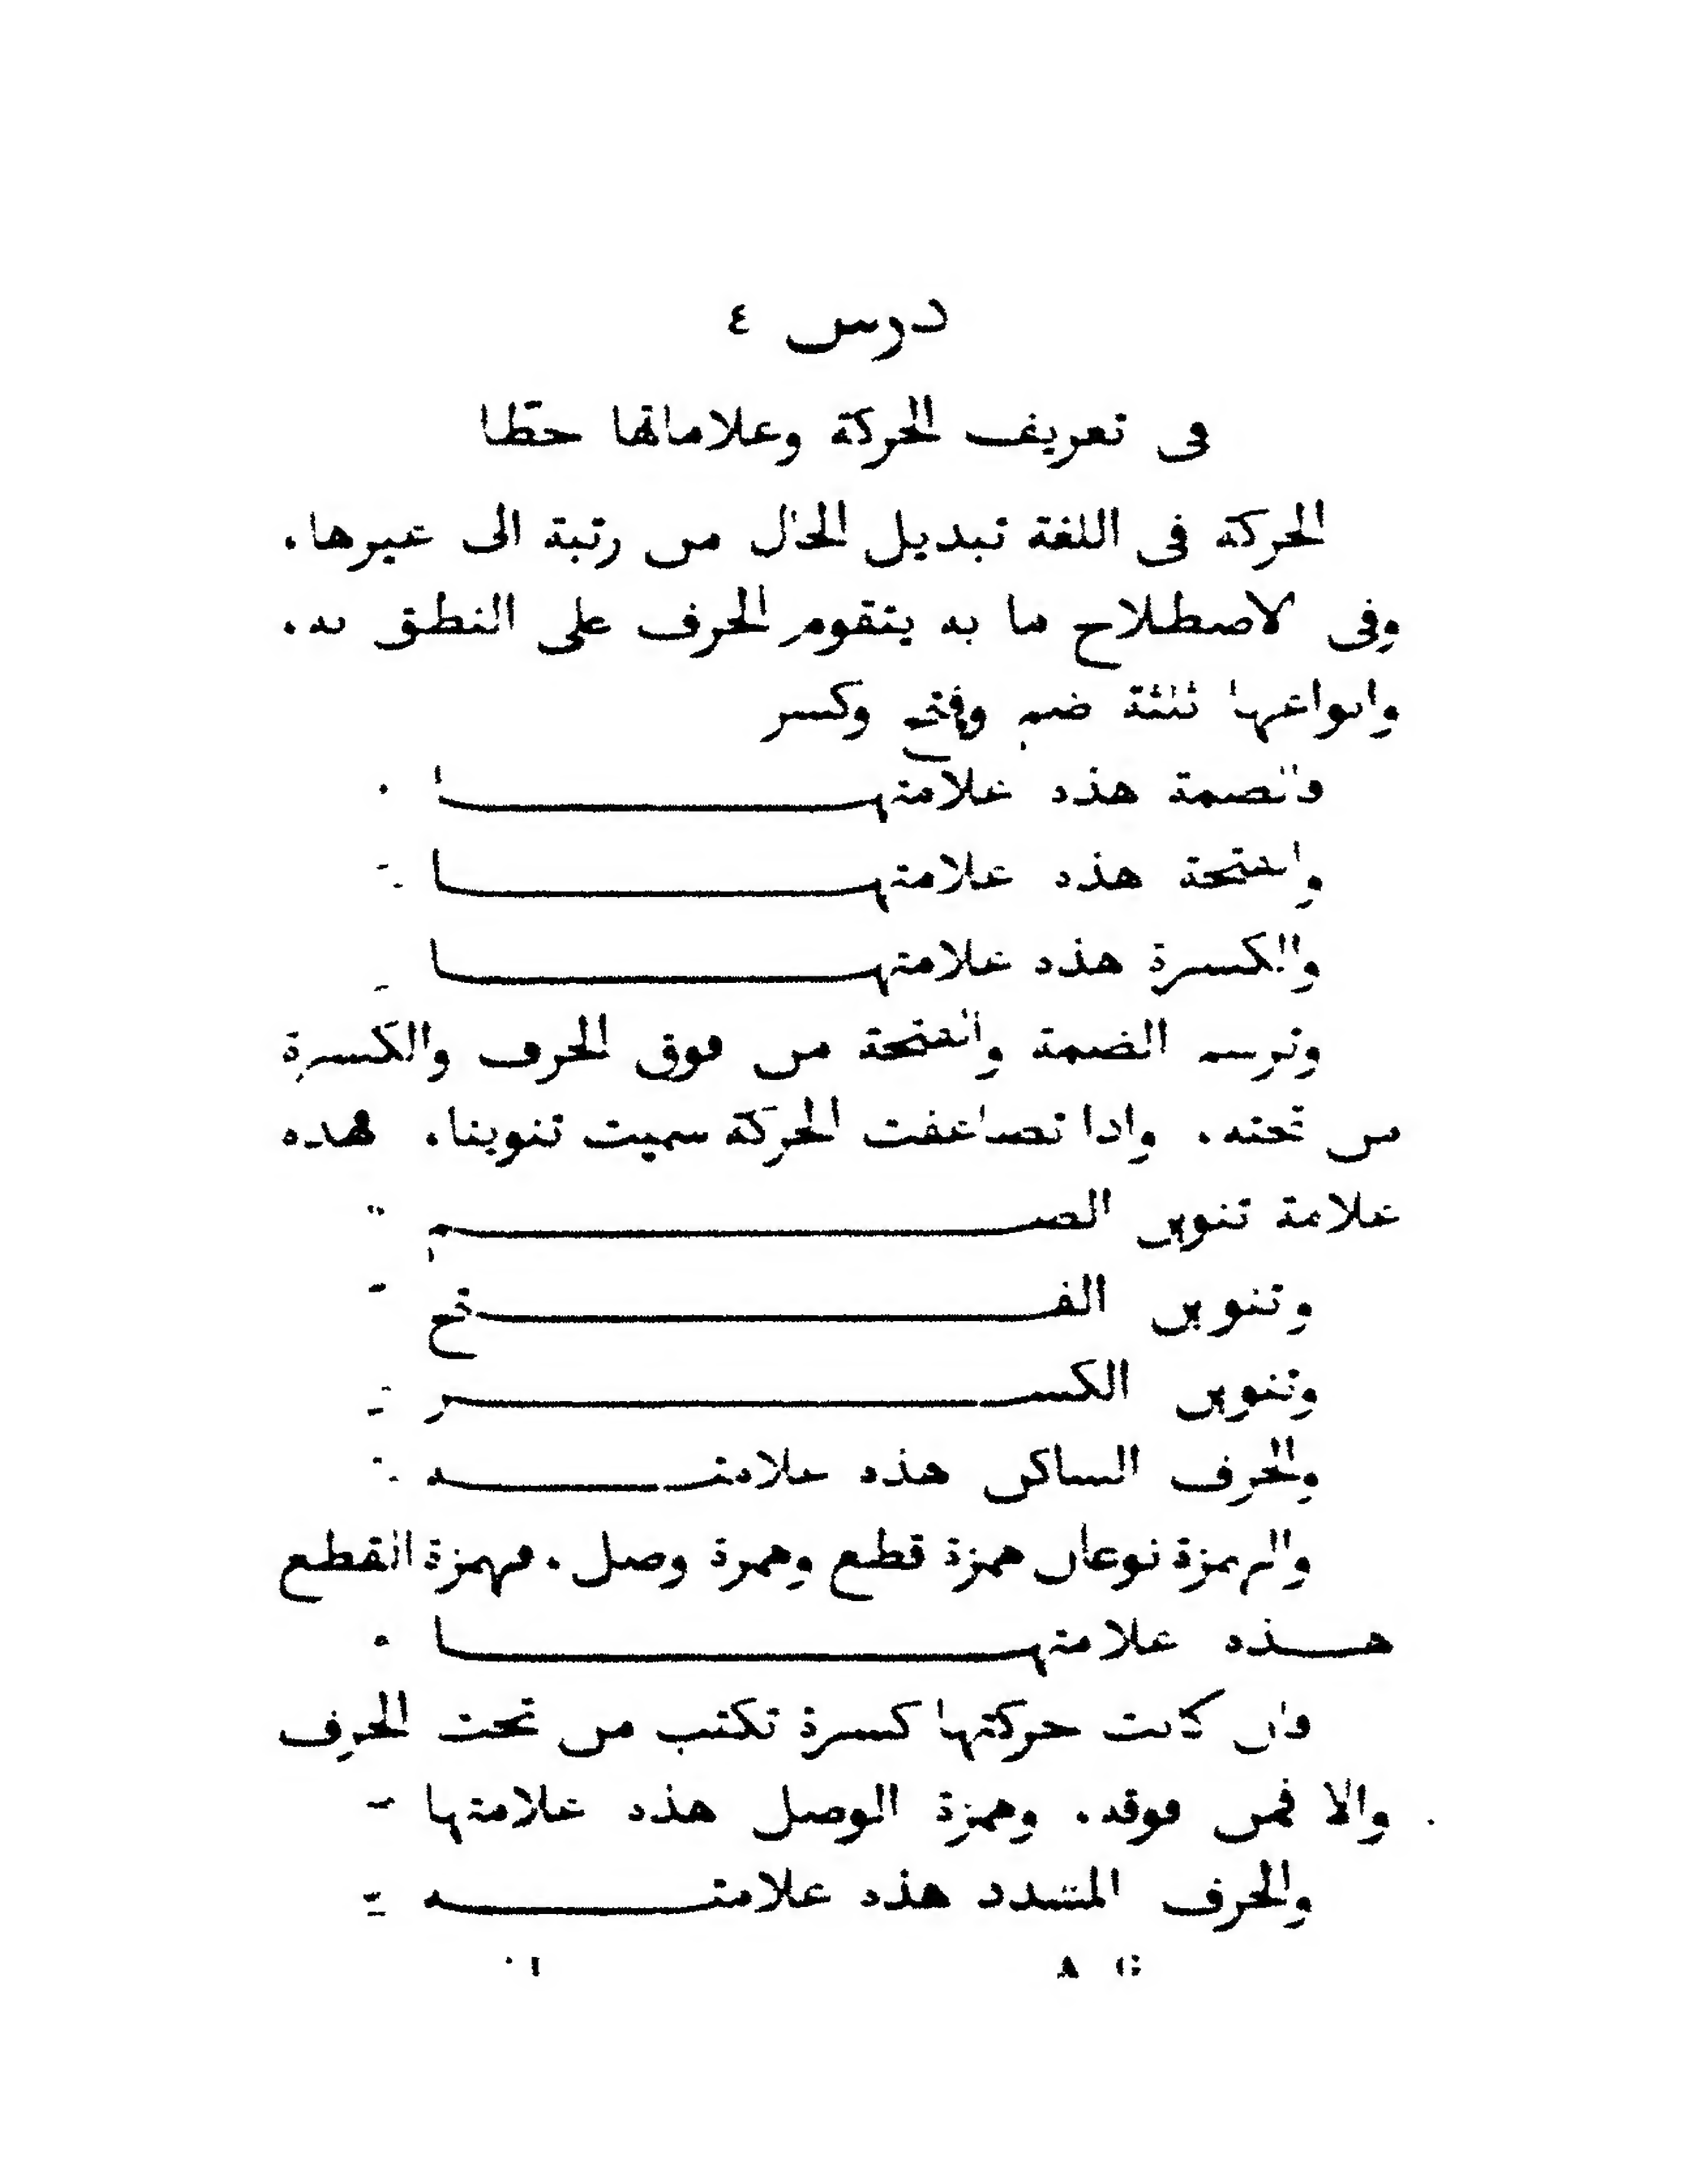 درس ٤
في تعريف الحركة وعلاماتها خطا
الحركة في اللغة تبديل الحال من رتبة الى غيرها.
وفي الاصطلاح ما به يتقوم الحرف على النطق به.
وانواعها ثلثة ضم وفتح وكسر
فالضمة هذه علامتهـــــــا
والفتحة هذه علامتهـــــــا
والكسرة هذه علامتهـــــــا
وترسم الضمة والفتحة من فوق الحرف والكسرة
من تحته. واذا تضاعفت الحركة سميت تنوينا. فهذه
علامة تنوين الضـــــــم
وتنوين الفـــــــتح
وتنوين الكســـــــر
والحرف الساكن هذه علامتـــــــه
والهمزة نوعان همزة قطع وهمزة وصل. فهمزة القطع
هـــذه علامتهـــــــا
فان كانت حركتها كسرة تكتب من تحت الحرف
والا فمن فوقه. وهمزة الوصل هذه علامتها
والحرف المشدد هذه علامتـــــــه